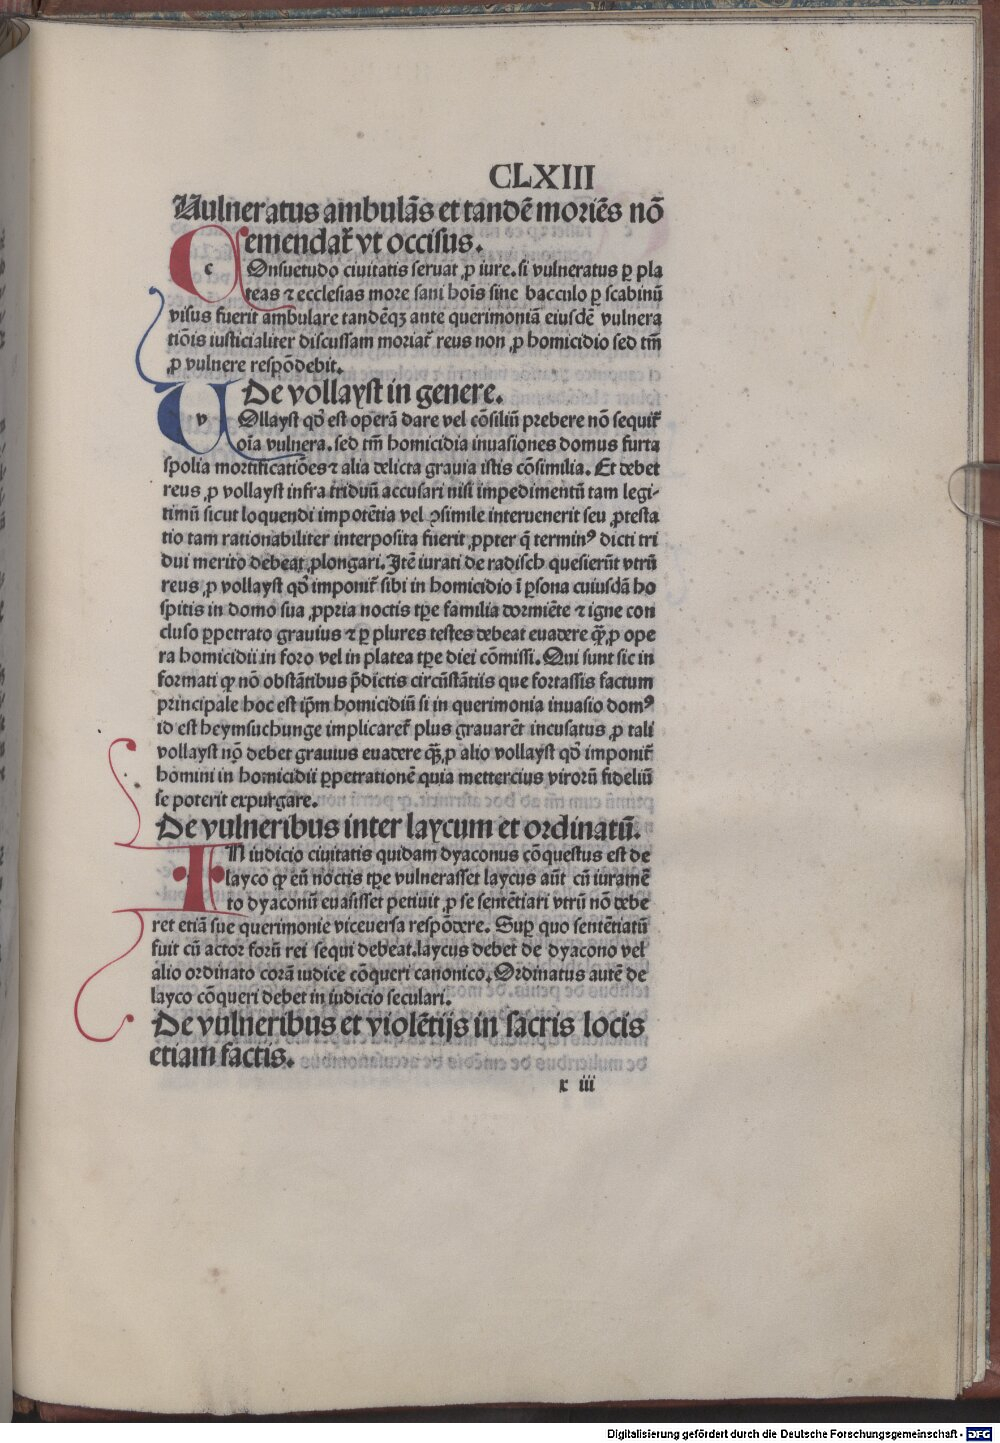 CLXIII
Vulneratus ambulãs et tandẽ moriẽs nõ
emendat᷑ vt occisus.
COnsuetudo ciuitatis seruat ꝓ iure. si vulneratus ꝑ pla
teas ⁊ ecclesias more sani hoĩs sine bacculo ꝑ scabinũ
visus fuerit ambulare tandẽqꝫ ante querimoniã eiusdẽ vulnera
tiõis iusticialiter discussam moriat᷑ reus non ꝓ homicidio sed tm̃
ꝓ vulnere respõdebit.
De vollayst in genere.
VOllayst qd̕ est operã dare vel cõsiliũ prebere nõ sequit᷑
oĩa vulnera. sed tm̃ homicidia inuasiones domus furta
spolia mortificatiões ⁊ alia delicta grauia istis cõsimilia. Et debet
reus ꝓ vollayst infra triduũ accusari nisi impedimentũ tam legi-
timũ sicut loquendi impotẽtia vel ꝯsimile interuenerit seu ꝓtesta
tio tam rationabiliter interposita fuerit ꝓpter q̃ terminꝰ dicti tri
dui merito debeat ꝓlongari. Itẽ iurati de radisch quesierũt vtrũ
reus ꝓ vollayst qd̕ imponit᷑ sibi in homicidio ĩ ꝑsona cuiusdã ho
spitis in domo sua ꝓpria noctis tꝑe familia dormiẽte ⁊ igne con
cluso ꝑpetrato grauius ⁊ ꝑ plures testes debeat euadere q̃ꝫ ꝓ ope
ra homicidii in foro vel in platea tꝑe diei cõmissi. Qui sunt sic in
formati ꝙ nõ obstãtibus p̃dictis circũstãtiis que fortassis factum
principale hoc est ip̃m homicidiũ si in querimonia inuasio domꝰ
id est heymsuchunge implicaret᷑ plus grauarẽt incusatus ꝓ tali
vollayst nõ debet grauius euadere q̃ꝫ ꝓ alio vollayst qd̕ imponit᷑
homini in homicidii ꝑpetrationẽ quia mettercius virorũ fideliũ
se poterit expurgare.
De vulneribus inter laycum et ordinatũ.
IN iudicio ciuitatis quidam dyaconus cõquestus est de
layco ꝙ eũ noctis tꝑe vulnerasset laycus aũt cũ iuramẽ
to dyaconũ euasisset petiuit ꝓ se sentẽtiari vtrũ nõ debe
ret etiã sue querimonie viceuersa respõdere. Suꝑ quo sentẽtiatũ
fuit cũ actor forũ rei sequi debeat. laycus debet de dyacono vel
alio ordinato corã iudice cõqueri canonico. Ordinatus autẽ de
layco cõqueri debet in iudicio seculari.
De vulneribus et violẽtijs in sacris locis
etiam factis.
x iii
Digitalisierung gefördert durch die Deutsche Forschungsgemeinschaft - DFG